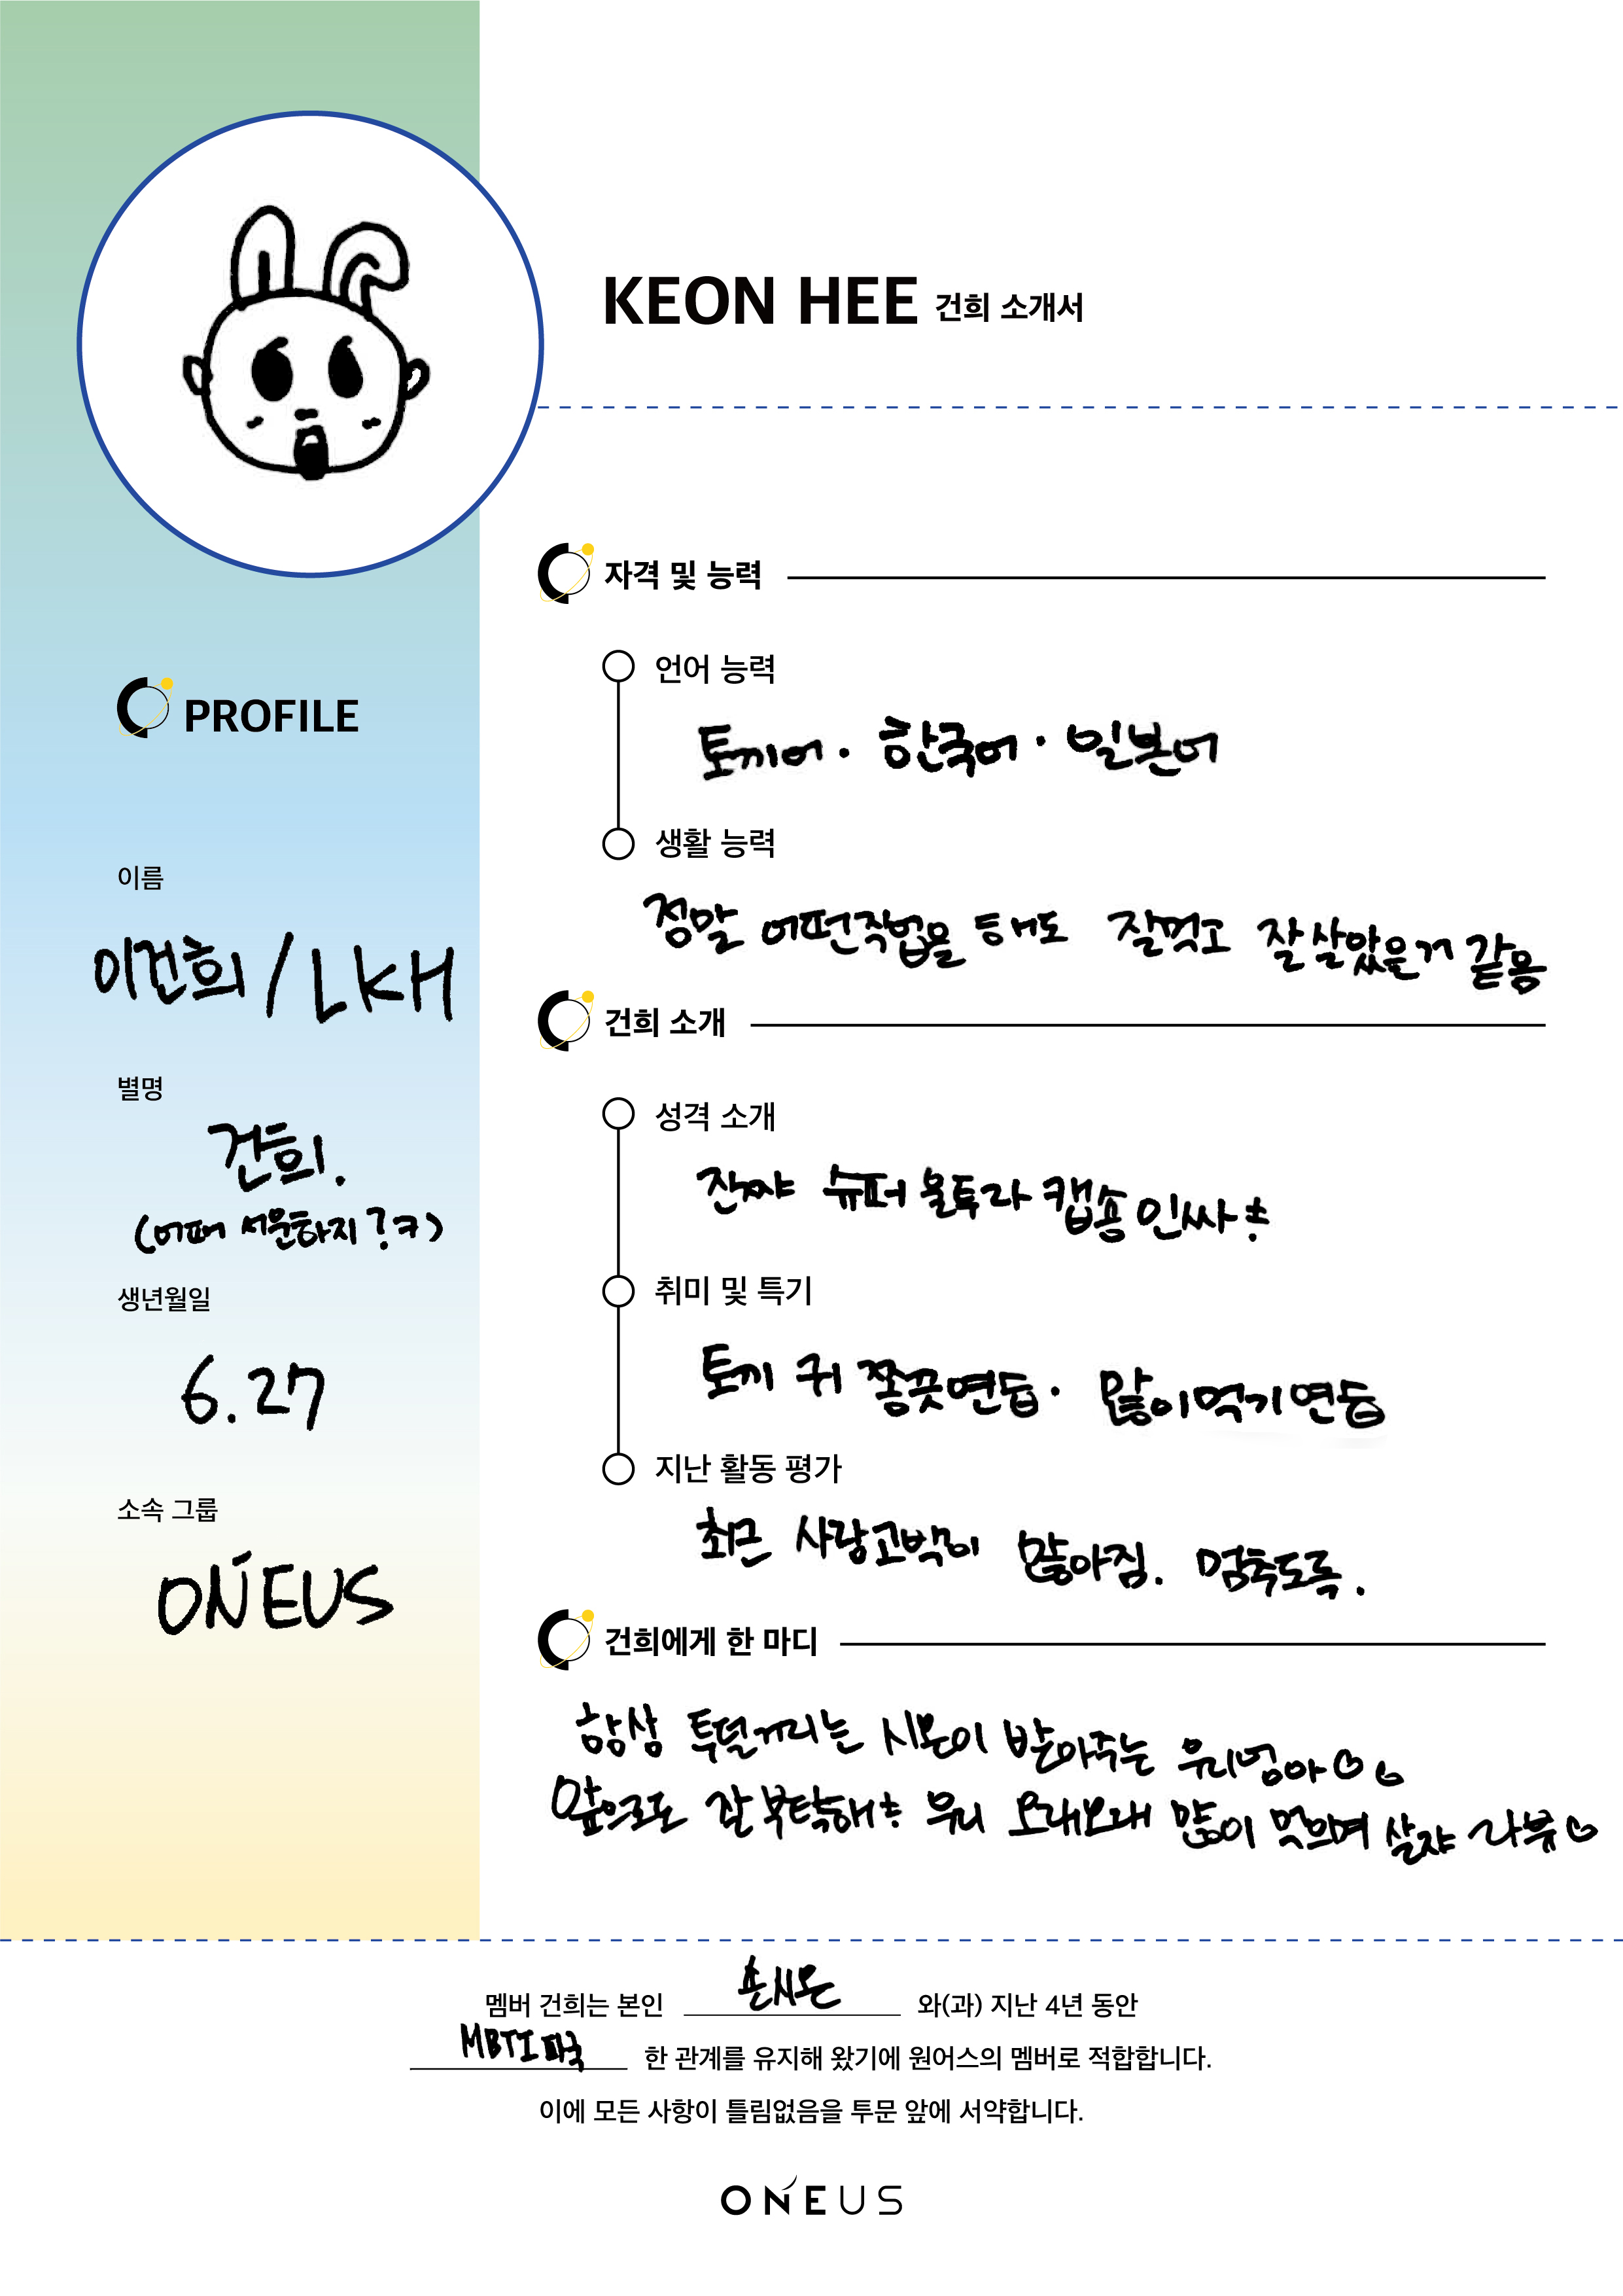 KEON HEE 건희 소개서
PROFILE
이름
이건희 / LKH
별명
건희.
(어때 서운하지?ㅋ)
생년월일
6.27
소속 그룹
ONEUS
자격 및 능력
언어 능력
토끼어 · 한국어 · 일본어
생활 능력
정말 어떤작업을 해도 잘먹고 잘살았을거 같음
건희 소개
성격 소개
진짜 슈퍼 울트라 캡숑 인싸
취미 및 특기
토끼 귀 쫑긋연습 · 많이먹기연습
지난 활동 평가
최근 사랑고백이 많아짐. 멈추도록.
건희에게 한 마디
항상 투덜거리는 시온이 받아주는 우리엄아♡
앞으로도 잘 부탁해 우리 오래오래 많이 먹으며 살쟈 라뷰♡
멤버 건희는 본인 손시온 와(과) 지난 4년 동안
MBTI 파국 한 관계를 유지해 왔기에 원어스의 멤버로 적합합니다.
이에 모든 사항이 틀림없음을 투문 앞에 서약합니다.
ONEUS